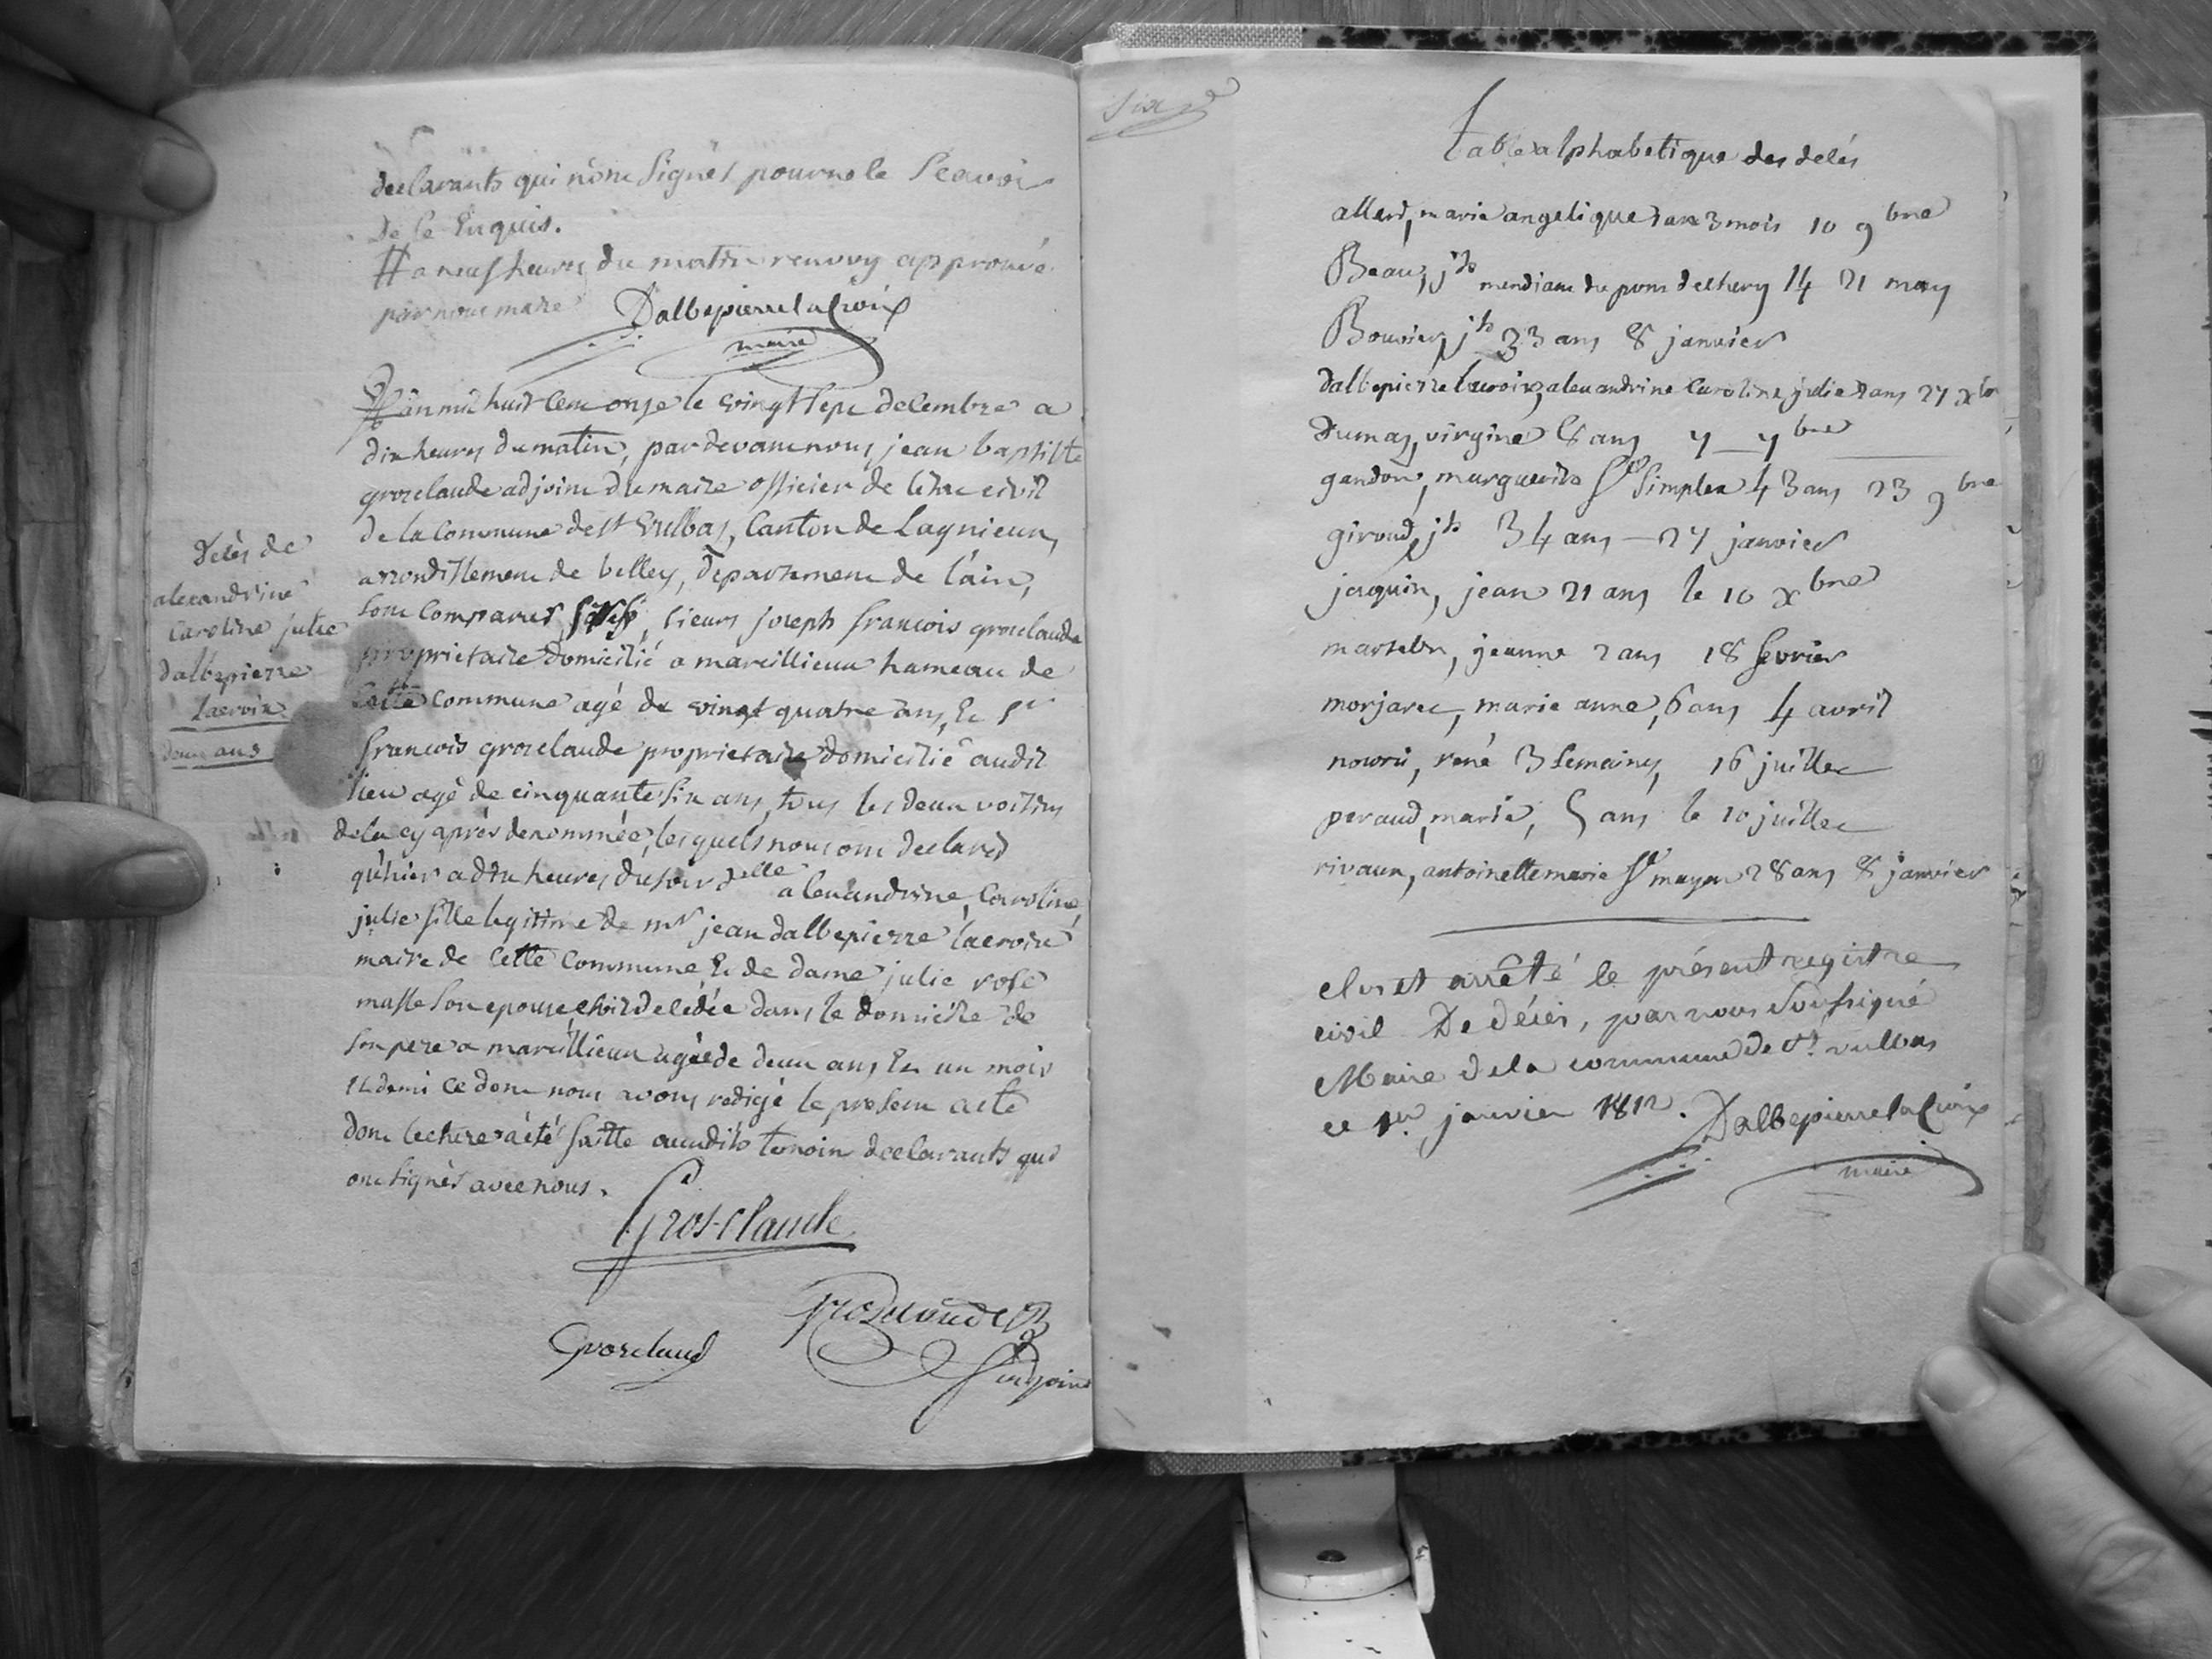 declarants qui nont Signés pour ne le Scavoir
De ce Enquis.
# a neuf heures du matin renvoy approuvé
par nous maire Dalbepierre la Croix
maire
L'an mil huit cent onze le vingt sept decembre a
dix heures du matin, par devant nous jean baptiste
grosclaude adjoint du maire officier de l'etat civil
de la Commune de st Vulbas, Canton de Lagnieux,
arrondissement de belley, departement de l'ain,
sont Comparus sieurs joseph francois grosclaude
proprietaire domicilié a marcillieux hameau de
cette commune agé de vingt quatre ans, Et Sr
francois grosclaude proprietaire domicilié audit
lieu agé de cinquante six ans, tous les deux voisins
de la cy après denommée, lesquels nous ont declaré
qu'hier a dix heures du soir dlle alexandrine, Caroline,
julie fille legitime de mr jean dalbepierre lacroix
maire de Cette Commune Et de dame julie rose
masse son epouse, est decedée dans le domicile de
son pere a marcillieux agée de deux ans Et un mois
et demi ce dont nous avons redigé le present acte
dont lecture a été faitte auxdits temoin declarants qui
ont signés avec nous.
Decès de
alexandrine
Caroline julie
dalbepierre
Lacroix
deux ans
Gros-Claude
Grosclaude
Grosclaud
adjoint
Six
Table alphabetique des delés
allard, marie angelique 1 an 3 mois 10 9bre
Beau, jh mendiant du pont de chery 14 21 may
Bouvier, jh 33 ans 8 janvier
dalbepierre lacroix, alexandrine Caroline, julie 2 ans 27 xbr
Dumas, virgine 8 ans 7 7bre
gandon, marguerite Simplex 43 ans 23 9bre
giroud, jh 34 ans — 27 janvier
jaquin, jean 21 ans le 10 xbre
martelin, jeanne 2 ans 18 fevrier
morjaret, marie anne, 6 ans 4 avril
nourri, rené 3 semaines, 16 juillet
peraud, marie, 5 ans le 10 juillet
rivaux, antoinette marie mayen 28 ans 8 janvier
Clos et arrêté le présent registre
civil De décés, par nous Soussigné
Maire de la commune de St. vulbas
ce 1er janvier 1812. Dalbepierre la Croix
maire